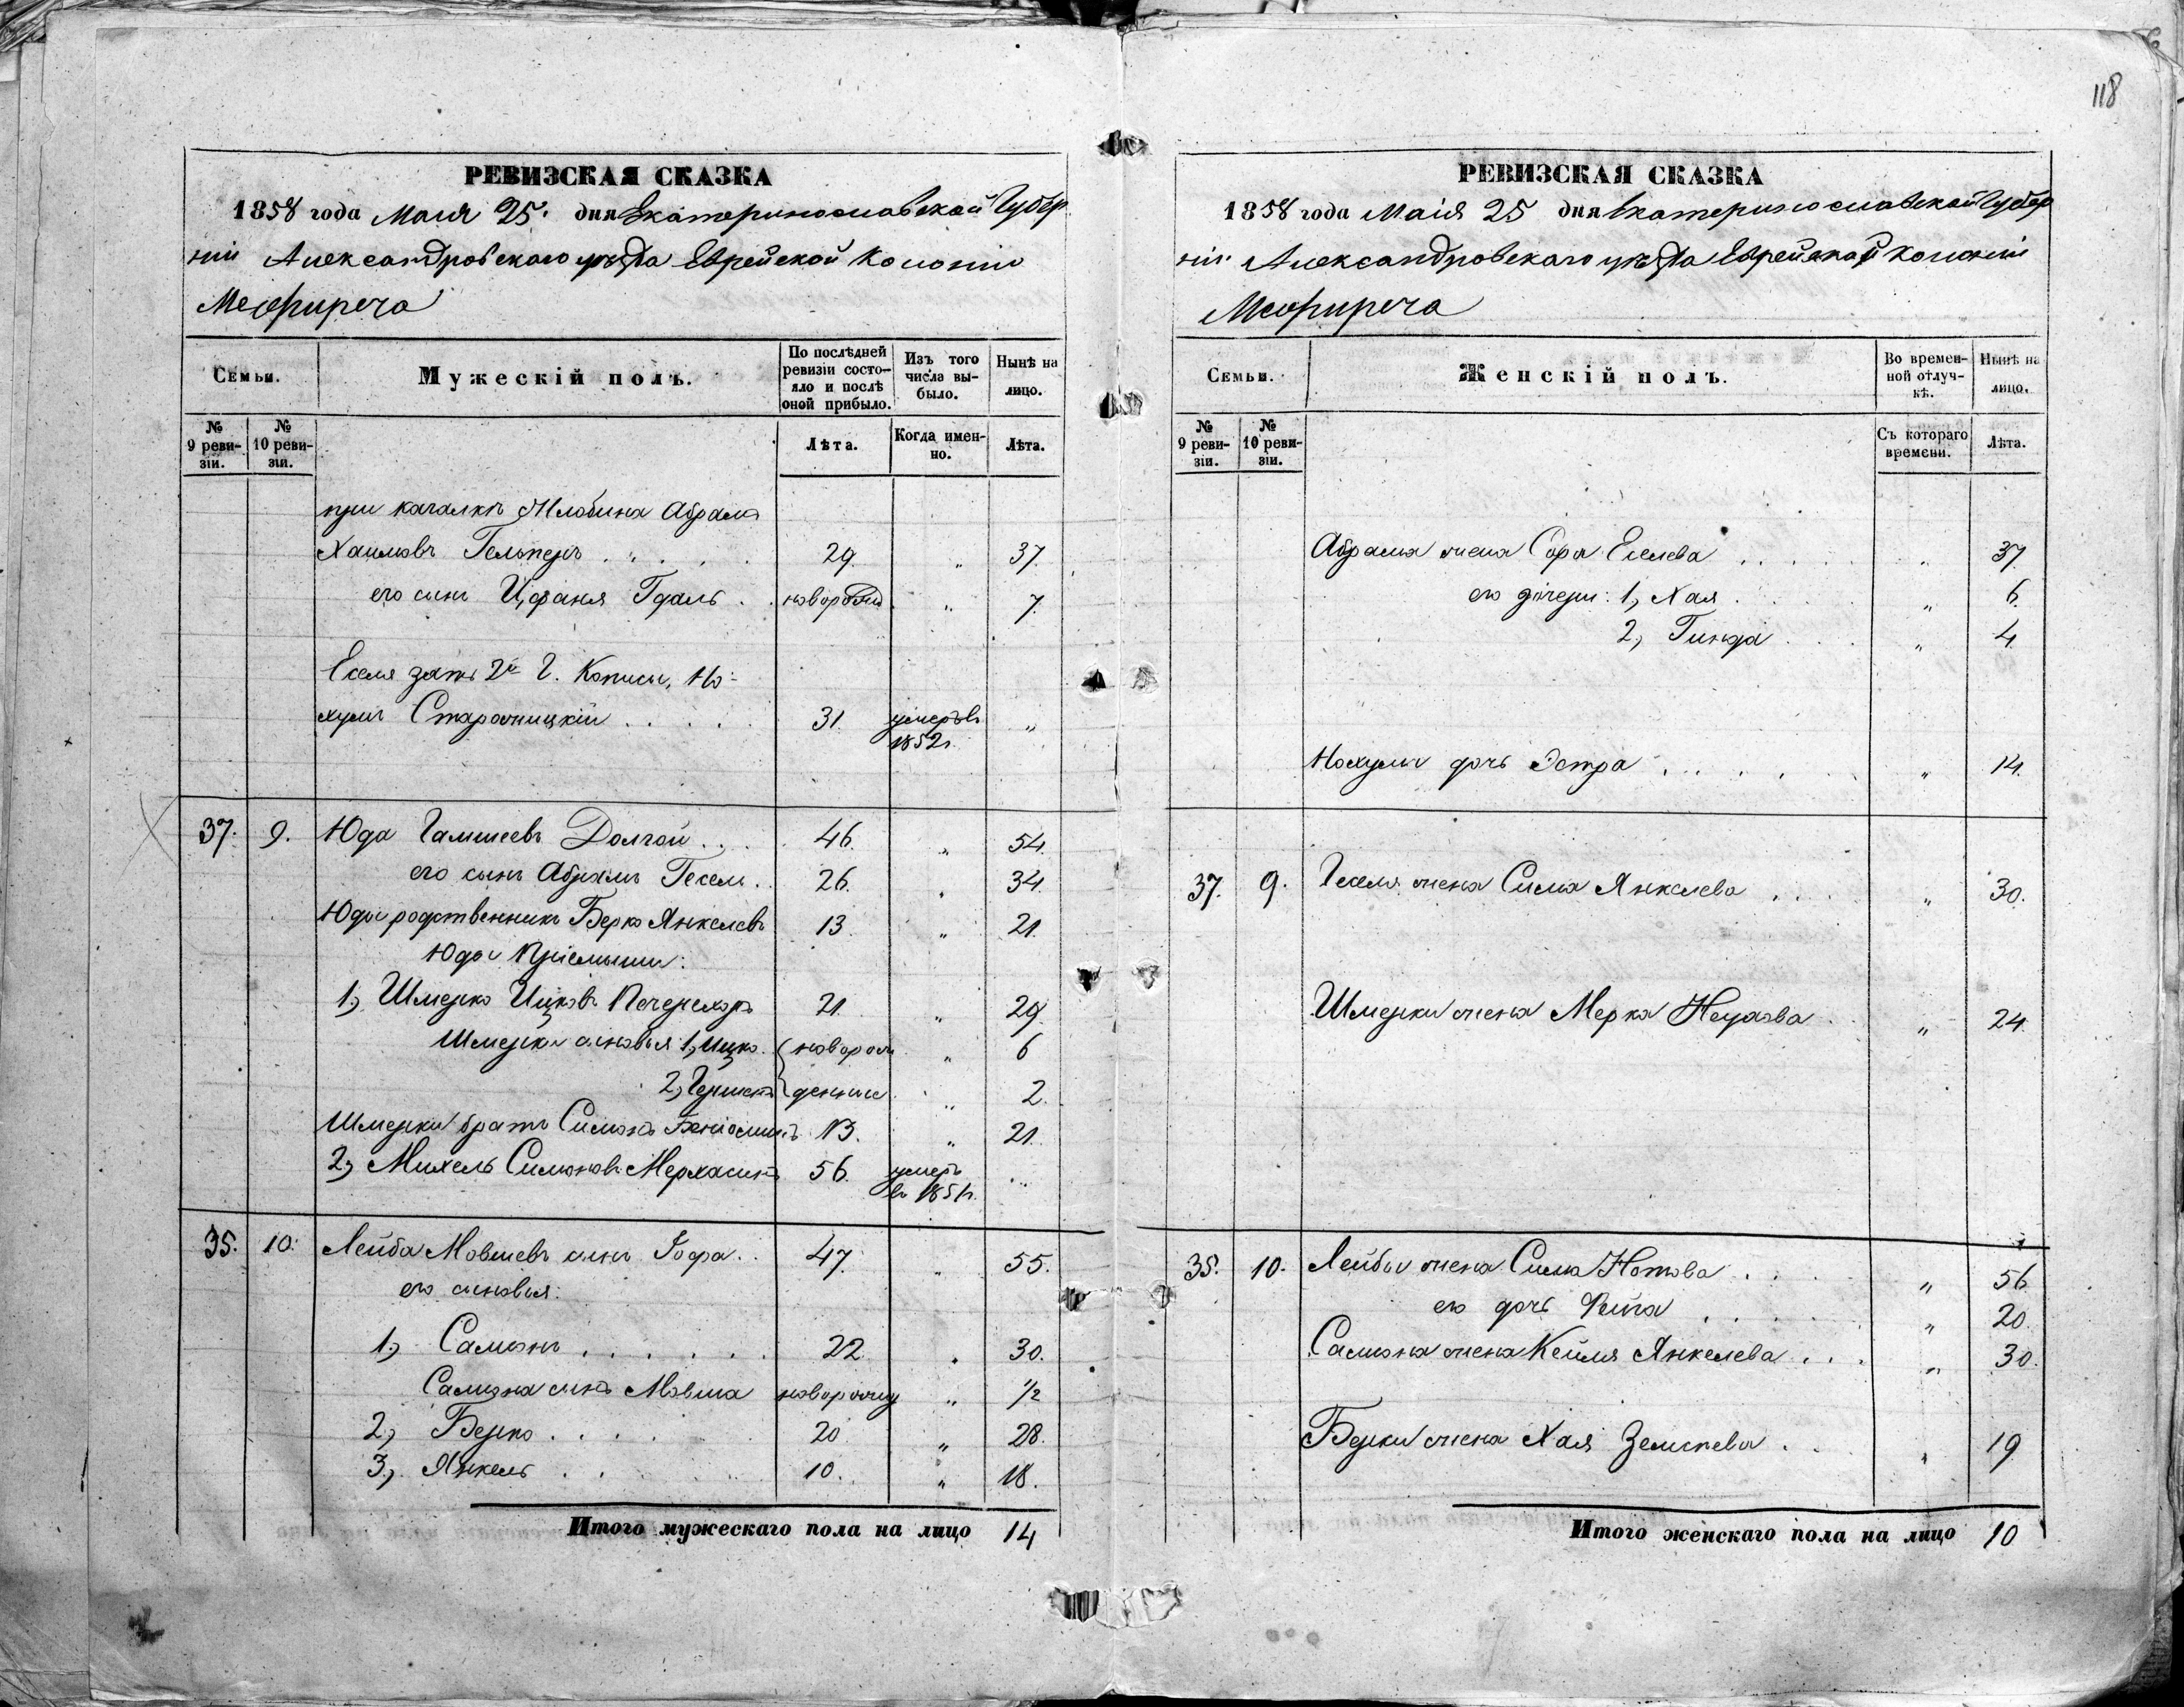 118
РЕВИЗСКАЯ СКАЗКА
1858 года Маия 25. дня Екатеринославской Губер
нiи Александровского уѣзда Еврейской Колонiи
Межирича
Семьи.
Мужескiй полъ.
По послѣдней ревизiи состо-
яло и послѣ оной прибыло.
Изъ того числа вы-
было.
Нынѣ на лицо.
№ 9 реви-
зiи.
№ 10 реви-
зiи.
Лѣта.
Когда имен-
но.
Лѣта.
при качалкѣ Абрамъ
Хаимовъ Гельперъ . . . . 29. „ 37.
его сынъ Цфаня Гдаль . . новорожд „ 7.
Еселя зять 2й Г. Но-
хумъ . . . . 31. умеръ въ 1852г. „
37. 9. Юда Гамшеевъ Долгой . . . 46. „ 54.
его сынъ Абрамъ Гесель . . 26. „ 34.
Юды родственникъ Берко Янкелевъ 13. „ 21.
Юды Прiемыши:
1, Шмерко Ицковъ Печерскорь 21. „ 29.
Шмерки сыновья 1, Ицко . новорож „ 6
2, Гершко денные „ 2.
Шмерки братъ Симонъ Бенiоминъ 13. „ 21.
2, Михель Симоновъ 56. умеръ въ 1851г. ...
35. 10. Лейба Мовшевъ сынъ Гофа . . 47. „ 55.
его сыновья:
1, Самсонъ . . . . . . 22. „ 30.
Самсона сынъ Мовша новорожд „ ½
2, Берко . . . . 20 „ 28.
3, Янкель . . . 10. „ 18.
Итого мужескаго пола на лицо 14
РЕВИЗСКАЯ СКАЗКА
1858 года Маiя 25 дня Екатеринославской Губер
нiи Александровскаго уѣзда Еврейской Колонiи
Межирича
Семьи.
Женскiй полъ.
Во времен-
ной отлуч-
кѣ.
Нынѣ на лицо.
№ 9 реви-
зiи.
№ 10 реви-
зiи.
Съ котораго времени.
Лѣта.
Абрама жена Сора Еселева . . . . „ 37.
его дочери: 1, Хая . „ 6.
2, Гинда . . . „ 4.
Нохума дочь Эстра . . . . „ 14.
37. 9. Геселя жена Сима Янкелева . . . „ 30.
Шмерки жена Мерка . „ 24.
35. 10. Лейбы жена Сима Нотова . . . „ 56
его дочь Фейга . . . . „ 20.
Самсона жена Кейля Янкелева . . . „ 30.
Берки жена Хая . . „ 19
Итого женскаго пола на лицо 10